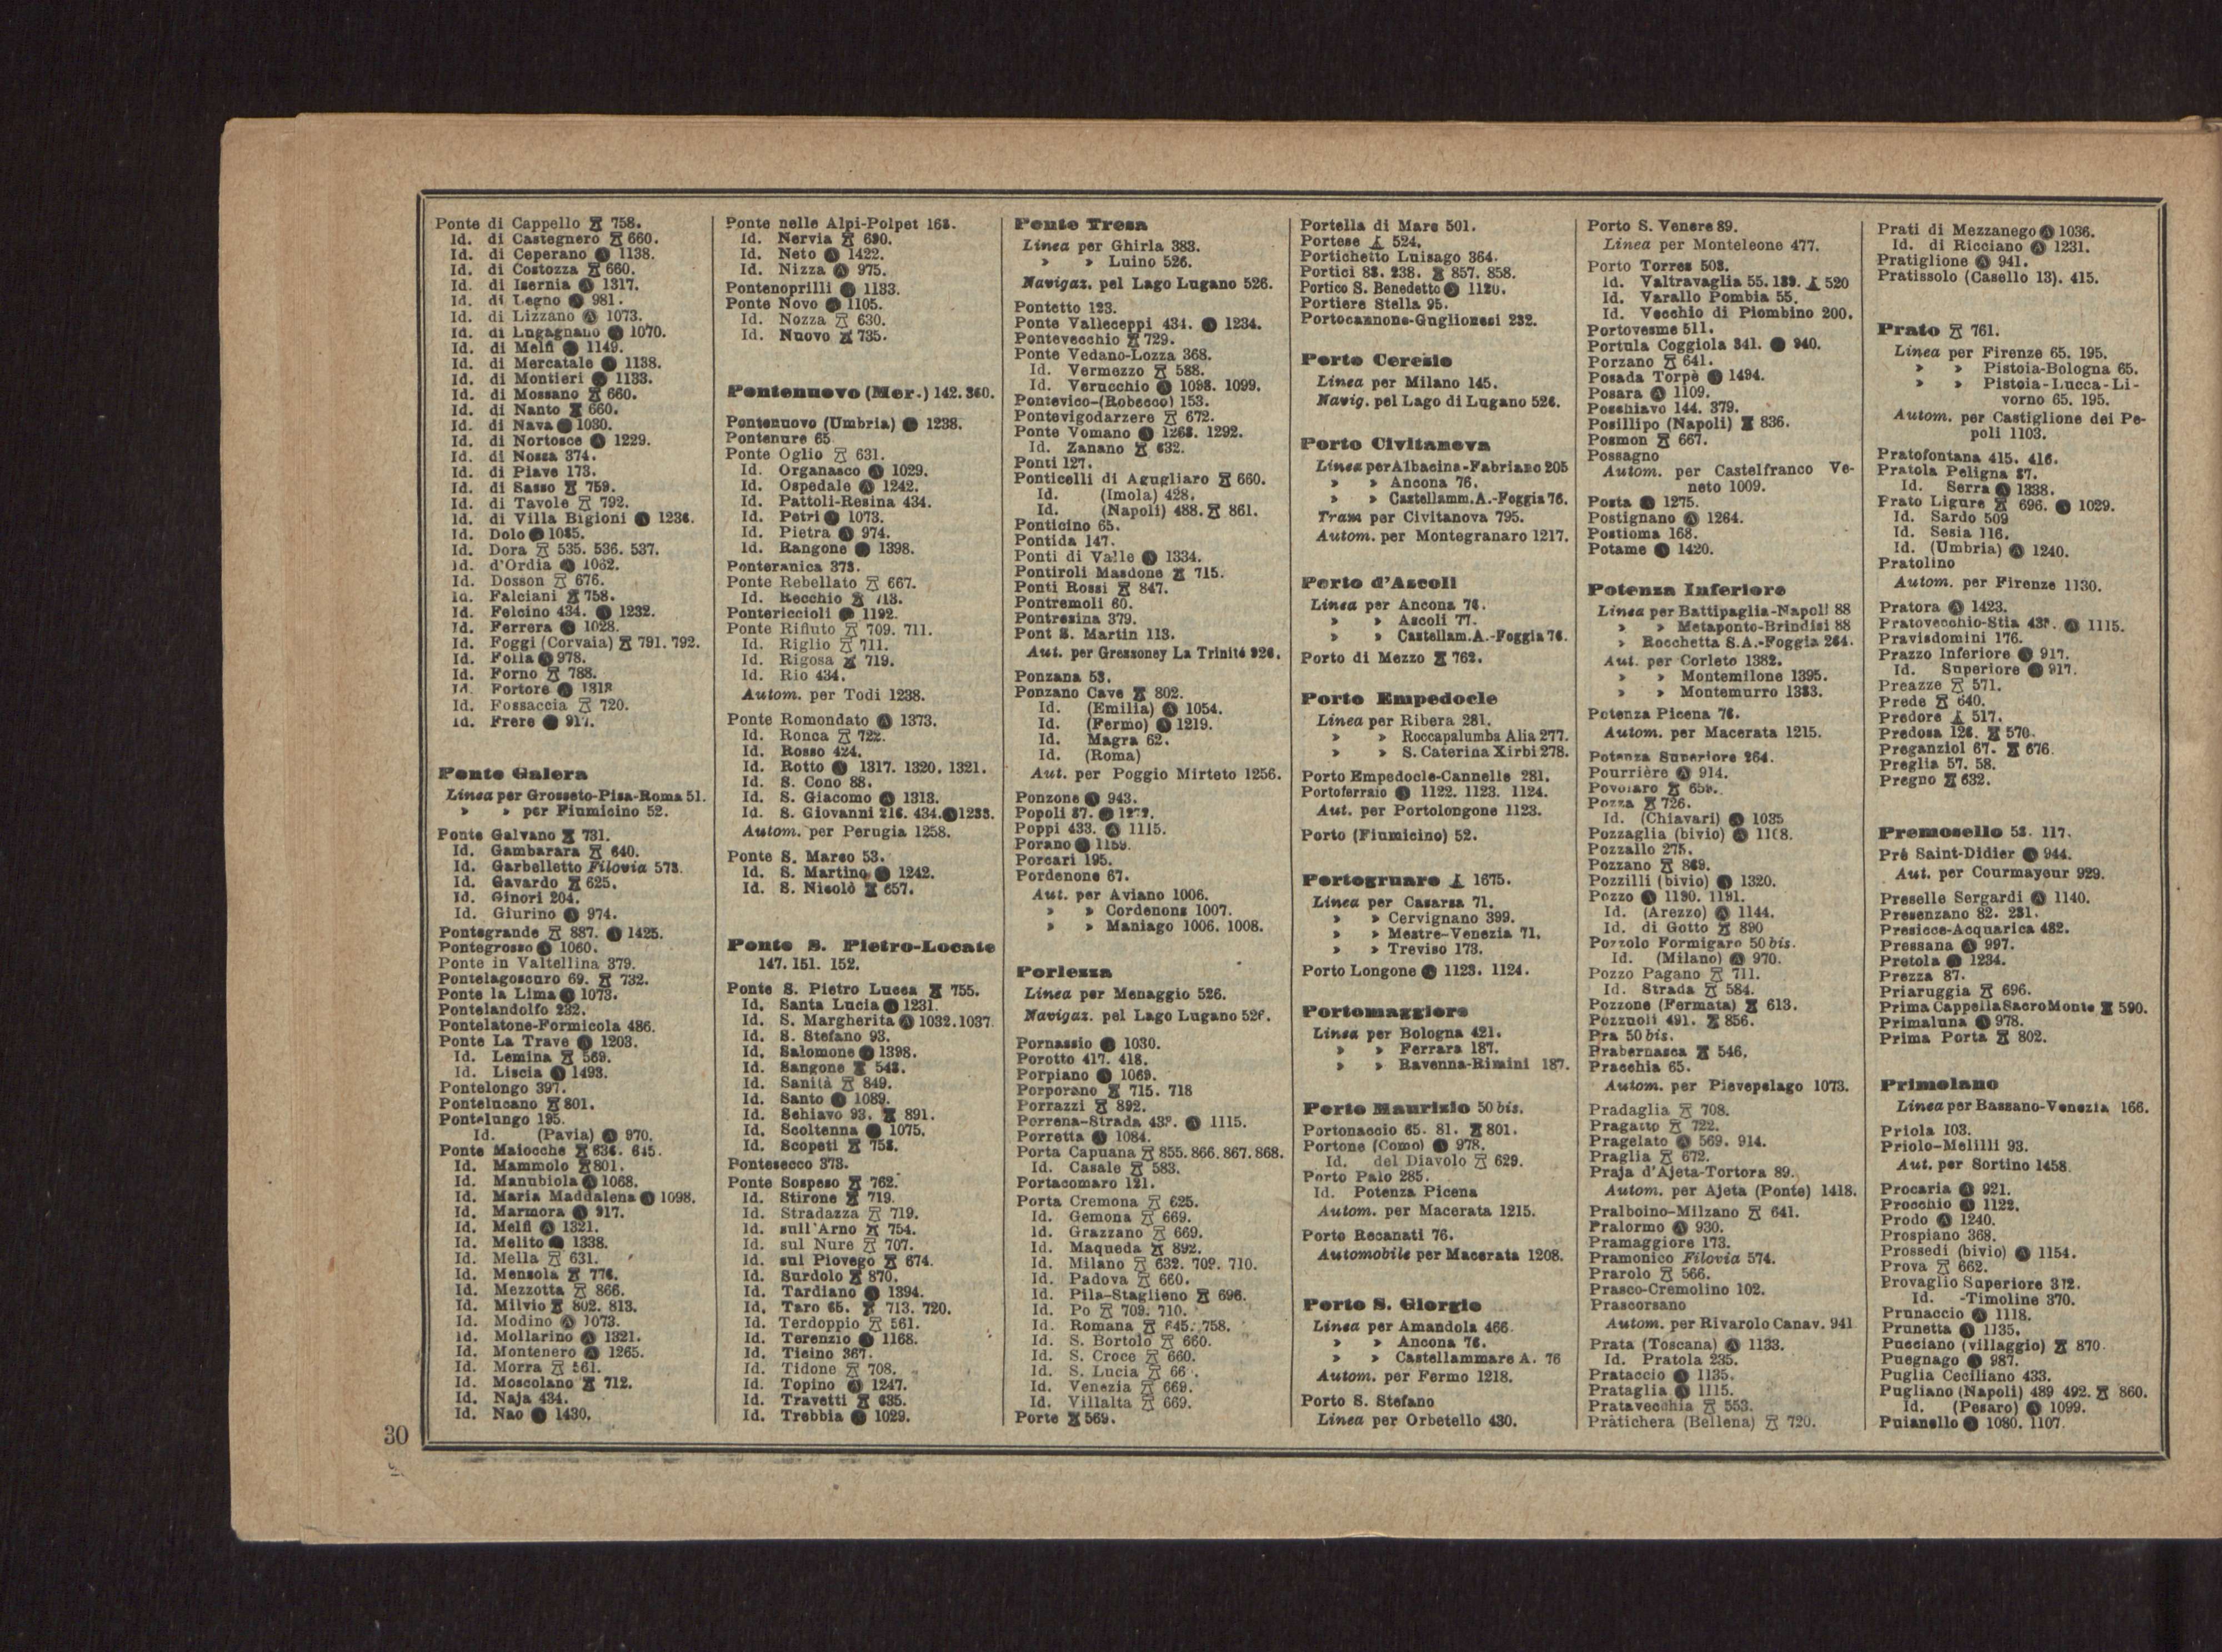 Ponte di Cappello 758.
Id. di Castegnero 660.
Id. di Ceperano Ⓐ 1138.
Id. di Costozza 660.
Id. di Isernia Ⓐ 1317.
Id. di Legno Ⓐ 981.
Id. di Lizzano Ⓐ 1073.
Id. di Lugagnano Ⓐ 1070.
Id. di Melfi Ⓐ 1149.
Id. di Mercatale Ⓐ 1138.
Id. di Montieri Ⓐ 1133.
Id. di Mossano 660.
Id. di Nanto 660.
Id. di Nava Ⓐ 1030.
Id. di Nortosce Ⓐ 1229.
Id. di Nossa 374.
Id. di Piave 173.
Id. di Sasso 759.
Id. di Tavole 792.
Id. di Villa Bigioni Ⓐ 1236.
Id. Dolo Ⓐ 1085.
Id. Dora 535. 536. 537.
Id. d'Ordia Ⓐ 1062.
Id. Dosson 676.
Id. Falciani 758.
Id. Felcino 434. Ⓐ 1232.
Id. Ferrera Ⓐ 1028.
Id. Foggi (Corvaia) 791. 792.
Id. Folla Ⓐ 978.
Id. Forno 788.
Id. Fortore Ⓐ 1318
Id. Fossaccia 720.
Id. Frere Ⓐ 917.
Ponte Galera
Linea per Grosseto-Pisa-Roma 51.
» » per Fiumicino 52.
Ponte Galvano 731.
Id. Gambarara 640.
Id. Garbelletto Filovia 573.
Id. Gavardo 625.
Id. Ginori 204.
Id. Giurino Ⓐ 974.
Pontegrande 887. Ⓐ 1425.
Pontegrosso Ⓐ 1060.
Ponte in Valtellina 379.
Pontelagoscuro 69. 732.
Ponte la Lima Ⓐ 1073.
Pontelandolfo 232.
Pontelatone-Formicola 486.
Ponte La Trave Ⓐ 1203.
Id. Lemina 569.
Id. Liscia Ⓐ 1493.
Pontelongo 397.
Pontelucano 801.
Pontelungo 195.
Id. (Pavia) Ⓐ 970.
Ponte Maiocche 636. 645.
Id. Mammolo 801.
Id. Manubiola Ⓐ 1068.
Id. Maria Maddalena Ⓐ 1098.
Id. Marmora Ⓐ 917.
Id. Melfi Ⓐ 1321.
Id. Melito Ⓐ 1338.
Id. Mella 631.
Id. Mensola 776.
Id. Mezzotta 866.
Id. Milvio 802. 813.
Id. Modino Ⓐ 1073.
Id. Mollarino Ⓐ 1321.
Id. Montenero Ⓐ 1265.
Id. Morra 561.
Id. Moscolano 712.
Id. Naja 434.
Id. Nao Ⓐ 1430.
Ponte nelle Alpi-Polpet 168.
Id. Nervia 690.
Id. Neto Ⓐ 1422.
Id. Nizza Ⓐ 975.
Pontenoprilli Ⓐ 1133.
Ponte Novo Ⓐ 1105.
Id. Nozza 630.
Id. Nuovo 735.
Pontenuovo (Mer.) 142. 360.
Pontenuovo (Umbria) Ⓐ 1238.
Pontenure 65
Ponte Oglio 631.
Id. Organasco Ⓐ 1029.
Id. Ospedale Ⓐ 1242.
Id. Pattoli-Resina 434.
Id. Petri Ⓐ 1073.
Id. Pietra Ⓐ 974.
Id. Rangone Ⓐ 1398.
Ponteranica 373.
Ponte Rebellato 667.
Id. Recchio 713.
Pontericcioli Ⓐ 1192.
Ponte Rifiuto 709. 711.
Id. Riglio 711.
Id. Rigosa 719.
Id. Rio 434.
Autom. per Todi 1238.
Ponte Romondato Ⓐ 1373.
Id. Ronca 722.
Id. Rosso 424.
Id. Rotto Ⓐ 1317. 1320. 1321.
Id. S. Cono 88.
Id. S. Giacomo Ⓐ 1313.
Id. S. Giovanni 216. 434. Ⓐ 1233.
Autom. per Perugia 1258.
Ponte S. Marco 53.
Id. S. Martino Ⓐ 1242.
Id. S. Nicolò 657.
Ponte S. Pietro-Locate
147. 151. 152.
Ponte S. Pietro Lucca 755.
Id. Santa Lucia Ⓐ 1231.
Id. S. Margherita Ⓐ 1032. 1037
Id. S. Stefano 93.
Id. Salomone Ⓐ 1398.
Id. Sangone 543.
Id. Sanità 849.
Id. Santo Ⓐ 1089.
Id. Schiavo 93. 891.
Id. Scoltenna Ⓐ 1075.
Id. Scopeti 758.
Pontesecco 373.
Ponte Sospeso 762.
Id. Stirone 719.
Id. Stradazza 719.
Id. sull'Arno 754.
Id. sul Nure 707.
Id. sul Piovego 674.
Id. Surdolo 870.
Id. Tardiano Ⓐ 1394.
Id. Taro 65. 713. 720.
Id. Terdoppio 561.
Id. Terenzio Ⓐ 1168.
Id. Ticino 367.
Id. Tidone 708.
Id. Topino Ⓐ 1247.
Id. Travetti 635.
Id. Trebbia Ⓐ 1029.
Ponte Tresa
Linea per Ghirla 383.
» » Luino 526.
Navigaz. pel Lago Lugano 526.
Pontetto 123.
Ponte Valleceppi 434. Ⓐ 1234.
Pontevecchio 729.
Ponte Vedano-Lozza 368.
Id. Vermezzo 588.
Id. Verucchio Ⓐ 1098. 1099.
Pontevico-(Robecco) 153.
Pontevigodarzere 672.
Ponte Vomano Ⓐ 1268. 1292.
Id. Zanano 632.
Ponti 127.
Ponticelli di Agugliaro 660.
Id. (Imola) 428.
Id. (Napoli) 488. 861.
Ponticino 65.
Pontida 147.
Ponti di Valle Ⓐ 1334.
Pontiroli Masdone 715.
Ponti Rossi 847.
Pontremoli 60.
Pontresina 379.
Pont S. Martin 113.
Aut. per Gressoney La Trinité 926.
Ponzana 53.
Ponzano Cave 802.
Id. (Emilia) Ⓐ 1054.
Id. (Fermo) Ⓐ 1219.
Id. Magra 62.
Id. (Roma)
Aut. per Poggio Mirteto 1256.
Ponzone Ⓐ 943.
Popoli 87. Ⓐ
Poppi 433. Ⓐ 1115.
Porano Ⓐ 1159.
Porcari 195.
Pordenone 67.
Aut. per Aviano 1006.
» » Cordenons 1007.
» » Maniago 1006. 1008.
Porlezza
Linea per Menaggio 526.
Navigaz. pel Lago Lugano 526.
Pornassio Ⓐ 1030.
Porotto 417. 418.
Porpiano Ⓐ 1069.
Porporano 715. 718
Porrazzi 892.
Porrena-Strada 433. Ⓐ 1115.
Porretta Ⓐ 1084.
Porta Capuana 855. 866. 867. 868.
Id. Casale 583.
Portacomaro 121.
Porta Cremona 625.
Id. Gemona 669.
Id. Grazzano 669.
Id. Maqueda 892.
Id. Milano 632. 709. 710.
Id. Padova 660.
Id. Pila-Staglieno 696.
Id. Po 709. 710.
Id. Romana 645. 758.
Id. S. Bortolo 660.
Id. S. Croce 660.
Id. S. Lucia
Id. Venezia 669.
Id. Villalta 669.
Porte 569.
Portella di Mare 501.
Portese 524.
Portichetto Luisago 364.
Portici 83. 238. 857. 858.
Portico S. Benedetto Ⓐ 1120.
Portiere Stella 95.
Portocannone-Guglionesi 232.
Porto Ceresio
Linea per Milano 145.
Navig. pel Lago di Lugano 526.
Porto Civitanova
Linea per Albacina-Fabriano 205
» » Ancona 76.
» » Castellamm. A.-Foggia 76.
Tram per Civitanova 795.
Autom. per Montegranaro 1217.
Porto d'Ascoli
Linea per Ancona 76.
» » Ascoli 77.
» » Castellam. A.-Foggia 76.
Porto di Mezzo 762.
Porto Empedocle
Linea per Ribera 281.
» » Roccapalumba Alia 277.
» » S. Caterina Xirbi 278.
Porto Empedocle-Cannelle 281.
Portoferraio Ⓐ 1122. 1123. 1124.
Aut. per Portolongone 1123.
Porto (Fiumicino) 52.
Portogruaro 1675.
Linea per Casarsa 71.
» » Cervignano 399.
» » Mestre-Venezia 71.
» » Treviso 173.
Porto Longone Ⓐ 1123. 1124.
Portomaggiore
Linea per Bologna 421.
» » Ferrara 187.
» » Ravenna-Rimini 187.
Porto Maurizio 50 bis.
Portonaccio 65. 81. 801.
Portone (Como) Ⓐ 978.
Id. del Diavolo 629.
Porto Palo 285.
Id. Potenza Picena
Autom. per Macerata 1215.
Porto Recanati 76.
Automobile per Macerata 1208.
Porto S. Giorgio
Linea per Amandola 466
» » Ancona 76.
» » Castellammare A. 76
Autom. per Fermo 1218.
Porto S. Stefano
Linea per Orbetello 430.
Porto S. Venere 89.
Linea per Monteleone 477.
Porto Torres 503.
Id. Valtravaglia 55. 139. 520
Id. Varallo Pombia 55.
Id. Vecchio di Piombino 200.
Portovesme 511.
Portula Coggiola 341. Ⓐ 940.
Porzano 641.
Posada Torpè Ⓐ 1494.
Posara Ⓐ 1109.
Poschiavo 144. 379.
Posillipo (Napoli) 836.
Posmon 667.
Possagno
Autom. per Castelfranco Ve-
neto 1009.
Posta Ⓐ 1275.
Postignano Ⓐ 1264.
Postioma 168.
Potame Ⓐ 1420.
Potenza Inferiore
Linea per Battipaglia-Napoli 88
» » Metaponto-Brindisi 88
» Rocchetta S.A.-Foggia 264.
Aut. per Corleto 1382.
» » Montemilone 1395.
» » Montemurro 1383.
Potenza Picena 76.
Autom. per Macerata 1215.
Potenza Superiore 264.
Pourrière Ⓐ 914.
Povolaro 659.
Pozza 726.
Id. (Chiavari) Ⓐ 1035
Pozzaglia (bivio) Ⓐ 1108.
Pozzallo 275.
Pozzano 869.
Pozzilli (bivio) Ⓐ 1320.
Pozzo Ⓐ 1190. 1191.
Id. (Arezzo) Ⓐ 1144.
Id. di Gotto 890
Pozzolo Formigaro 50 bis.
Id. (Milano) Ⓐ 970.
Pozzo Pagano 711.
Id. Strada 584.
Pozzone (Fermata) 613.
Pozzuoli 491. 856.
Pra 50 bis.
Prabernasca 546.
Pracchia 65.
Autom. per Pievepelago 1073.
Pradaglia 708.
Pragatto 722.
Pragelato Ⓐ 569. 914.
Praglia 672.
Praja d'Ajeta-Tortora 89.
Autom. per Ajeta (Ponte) 1418.
Pralboino-Milzano 641.
Pralormo Ⓐ 930.
Pramaggiore 173.
Pramonico Filovia 574.
Prarolo 566.
Prasco-Cremolino 102.
Prascorsano
Autom. per Rivarolo Canav. 941
Prata (Toscana) Ⓐ 1133.
Id. Pratola 235.
Prataccio Ⓐ 1135.
Prataglia Ⓐ 1115.
Pratavecchia 553.
Pratichera (Bellena) 720.
Prati di Mezzanego Ⓐ 1036.
Id. di Ricciano Ⓐ 1231.
Pratiglione Ⓐ 941.
Pratissolo (Casello 13). 415.
Prato 761.
Linea per Firenze 65. 195.
» » Pistoia-Bologna 65.
» » Pistoia-Lucca-Li-
vorno 65. 195.
Autom. per Castiglione dei Pe-
poli 1103.
Pratofontana 415. 416.
Pratola Peligna 87.
Id. Serra Ⓐ 1338.
Prato Ligure 696. Ⓐ 1029.
Id. Sardo 509
Id. Sesia 116.
Id. (Umbria) Ⓐ 1240.
Pratolino
Autom. per Firenze 1130.
Pratora Ⓐ 1423.
Pratovecchio-Stia 433. Ⓐ 1115.
Pravisdomini 176.
Prazzo Inferiore Ⓐ 917.
Id. Superiore Ⓐ 917.
Preazze 571.
Prede 640.
Predore 517.
Predosa 126. 570.
Preganziol 67. 676.
Preglia 57. 58.
Pregno 632.
Premosello 53. 117.
Pré Saint-Didier Ⓐ 944.
Aut. per Courmayeur 929.
Preselle Sergardi Ⓐ 1140.
Presenzano 82. 231.
Presicce-Acquarica 482.
Pressana Ⓐ 997.
Pretola Ⓐ 1234.
Prezza 87.
Priaruggia 696.
Prima Cappella Sacro Monte 590.
Primaluna Ⓐ 978.
Prima Porta 802.
Primolano
Linea per Bassano-Venezia 166.
Priola 103.
Priolo-Melilli 93.
Aut. per Sortino 1458
Procaria Ⓐ 921.
Procchio Ⓐ 1122.
Prodo Ⓐ 1240.
Prospiano 368.
Prossedi (bivio) Ⓐ 1154.
Prova 662.
Provaglio Superiore 372.
Id. -Timoline 370.
Prunaccio Ⓐ 1118.
Prunetta Ⓐ 1135.
Pucciano (villaggio) 870.
Puegnago Ⓐ 987.
Puglia Ceciliano 433.
Pugliano (Napoli) 489 492. 860.
Id. (Pesaro) Ⓐ 1099.
Puianello Ⓐ 1080. 1107.
30